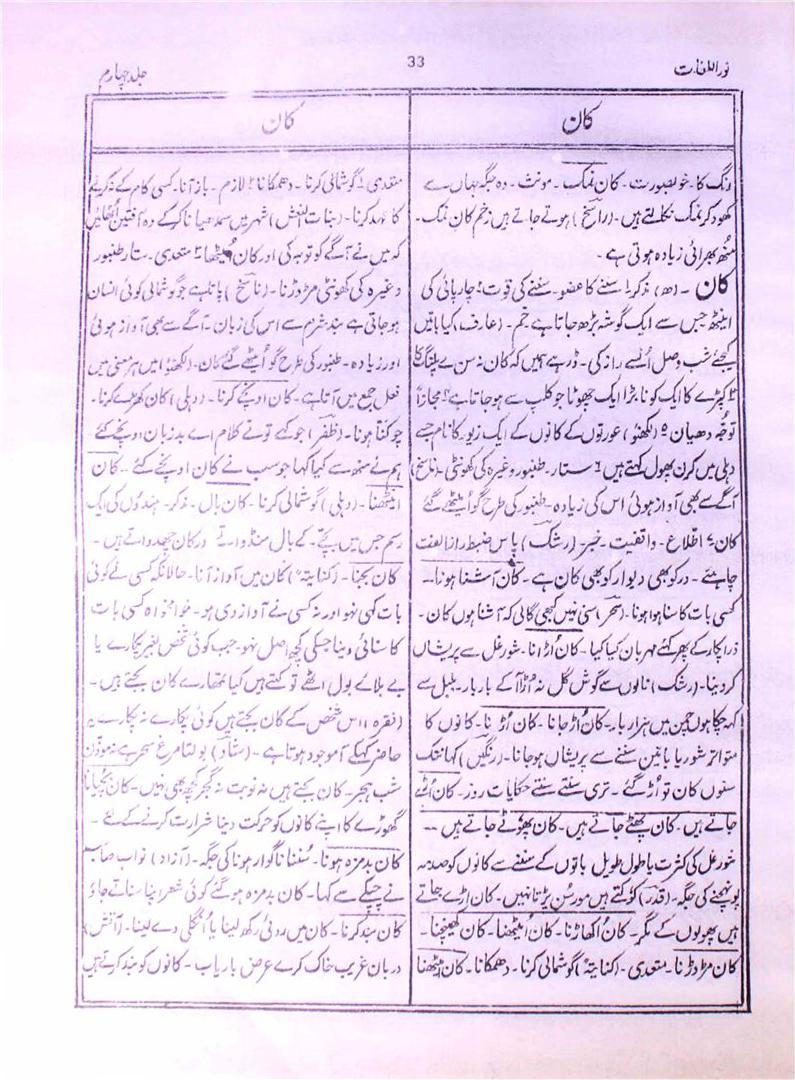 نور اللغات
33
جلد چہارم
کان
رنگ کا۔ خوبصورت۔ کان نمک۔ مونث۔ وہ جگہ جہاں سے
کھود کر نمک نکالتے ہیں۔ (راسخ) ہوتے جاتے ہیں زخم کان نمک۔
منھ بھرائی زیادہ ہوتی ہے۔
کان۔ (ھ) مذکر ۱ سننے کا عضو۔ سننے کی قوت ۲ چارپائی کی
اینٹھ جس سے ایک گوشہ بڑھ جاتا ہے۔ خم۔ (عارف) کیا باتیں
کیجئے شب وصل اُنسے راز کی۔ ڈر ہے ہمیں کہ کان نہ سن لے پلنگ کا
۳ کپڑے کا ایک کونا بڑا ایک چھوٹا جو کلپ سے ہو جاتا ہے ۴ مجازاً
توجّہ دھیان ۵ (لکھنؤ) عورتوں کے کانوں کے ایک زیور کا نام جسے
دہلی میں کرن پھول کہتے ہیں ۶ ستار۔ طنبور وغیرہ کی کھونٹی۔ (ناسخ)
آگے سے بھی آواز ہوئی اس کی زیادہ۔ طنبور کی طرح گو اُمیٹھے گئے
کان ۷ اطلاع۔ واقفیت۔ خبر۔ (رشک) پاس ضبط راز الفت
چاہئے۔ در کو بھی دیوار کو بھی کان ہے۔ کان آشنا ہونا۔
کسی بات کا سنا ہوا ہونا۔ (سحر) سنی نہیں کبھی گالی کہ آشنا ہوں کان۔
ذرا پکار کے پھر کہئے مہربان کیا کیا۔ کان اُڑانا۔ شور غل سے پریشاں
کر دینا۔ (رشک) نالوں سے گوش گل نہ اُڑا آ کے بار بار۔ بلبل سے
کہہ چکا ہوں چمن میں ہزار بار۔ کان اُڑ جانا۔ کان اُڑنا۔ کانوں کا
متواتر شور یا باتیں سننے سے پریشاں ہو جانا۔ (رنگیں) کہانتک
سنوں کان تو اُڑ گئے۔ تری سنتے سنتے حکایات روز۔ کان اُڑے
جاتے ہیں۔ کان پھٹے جاتے ہیں۔ کان پھوٹے جاتے ہیں۔
شور غل کی کثرت یا طول طویل باتوں کے سننے سے کانوں کو صدمہ
پونہچنے کی جگہ۔ (قدر) کوکتے ہیں مور سُن پڑتا نہیں۔ کان اڑے جاتے
ہیں پھولوں کے مگر۔ کان اُکھاڑنا۔ کان اُمیٹھنا۔ کان کھینچنا۔
کان مڑوڑنا۔ متعدی۔ (کنایتہً) گوشمالی کرنا۔ دھمکانا۔ کان امیٹھنا
کان
متعدی ۱ گوشمالی کرنا۔ دھمکانا ۲ لازم۔ باز آنا۔ کسی کام کے نہ کرنے
کا عہد کرنا۔ (بنات النعش) شہر میں سمدھیانا کر کے وہ آفتیں اُٹھائیں
کہ میں نے آگے کو توبہ کی اور کان اُمیٹھا ۳ متعدی۔ ستار طنبور
وغیرہ کی کھونٹی مڑوڑنا۔ (ناسخ) پاتا ہے جو گوشمالی کوئی انسان
ہو جاتی ہے بند شرم سے اس کی زبان۔ آگے سے بھی آواز ہوئی
اور زیادہ۔ طنبور کی طرح گو اُمیٹھے گئے کان۔ (لکھنؤ) میں ہر معنی میں
فعل جمع میں آتا ہے۔ کان اونچے کرنا۔ (دہلی) کان کھڑے کرنا۔
چوکنا ہونا۔ (ظفر) جو کہے تو نے کلام اے بد زبان اونچے کئے
ہم نے منھ سے کیا کہا جو سب نے کان اونچے کئے۔ کان
اینٹھنا۔ (دہلی) گوشمالی کرنا۔ کان بال۔ مذکر۔ ہندوں کی ایک
رسم جس میں بچے کے بال منڈواتے اور کان چھدواتے ہیں۔
کان بجنا۔ (کنایتہً) کان میں آواز آنا۔ حالانکہ کسی نے کوئی
بات کہی نہو اور نہ کسی نے آواز دی ہو۔ خوامخواہ کسی بات
کا سنائی دینا جسکی کچھ اصل نہو۔ جب کوئی شخص بغیر پکارے یا
بے بلائے بول اٹھے تو کہتے ہیں کیا تمھارے کان بجتے ہیں۔
(فقرہ) اس شخص کے کان بجتے ہیں کوئی پکارے نہ پکارے یہ
حاضر کہکے آ موجود ہوتا ہے۔ (شاد) بولتا مرغ سحر ہے نہ موذن
شب ہجر۔ کان بجتے ہیں نہ نوبت نہ گجر کچھ بھی نہیں۔ کان
گھوڑے کا اپنے کانوں کو حرکت دینا شرارت کرنے کے لئے۔
کان بدمزہ ہونا۔ سُننا ناگوار ہونا کی جگہ۔ (آزاد) نواب صاحب
نے چپکے سے کہا۔ کان بدمزہ ہو گئے کوئی شعر اپنا سناتے جاؤ
کان بند کرنا۔ کان میں روئی رکھ لینا یا اُنگلی دے لینا۔ (آتش)
دربان غریب خاک کرے عرض باریاب۔ کانوں کو بند کرتے ہیں